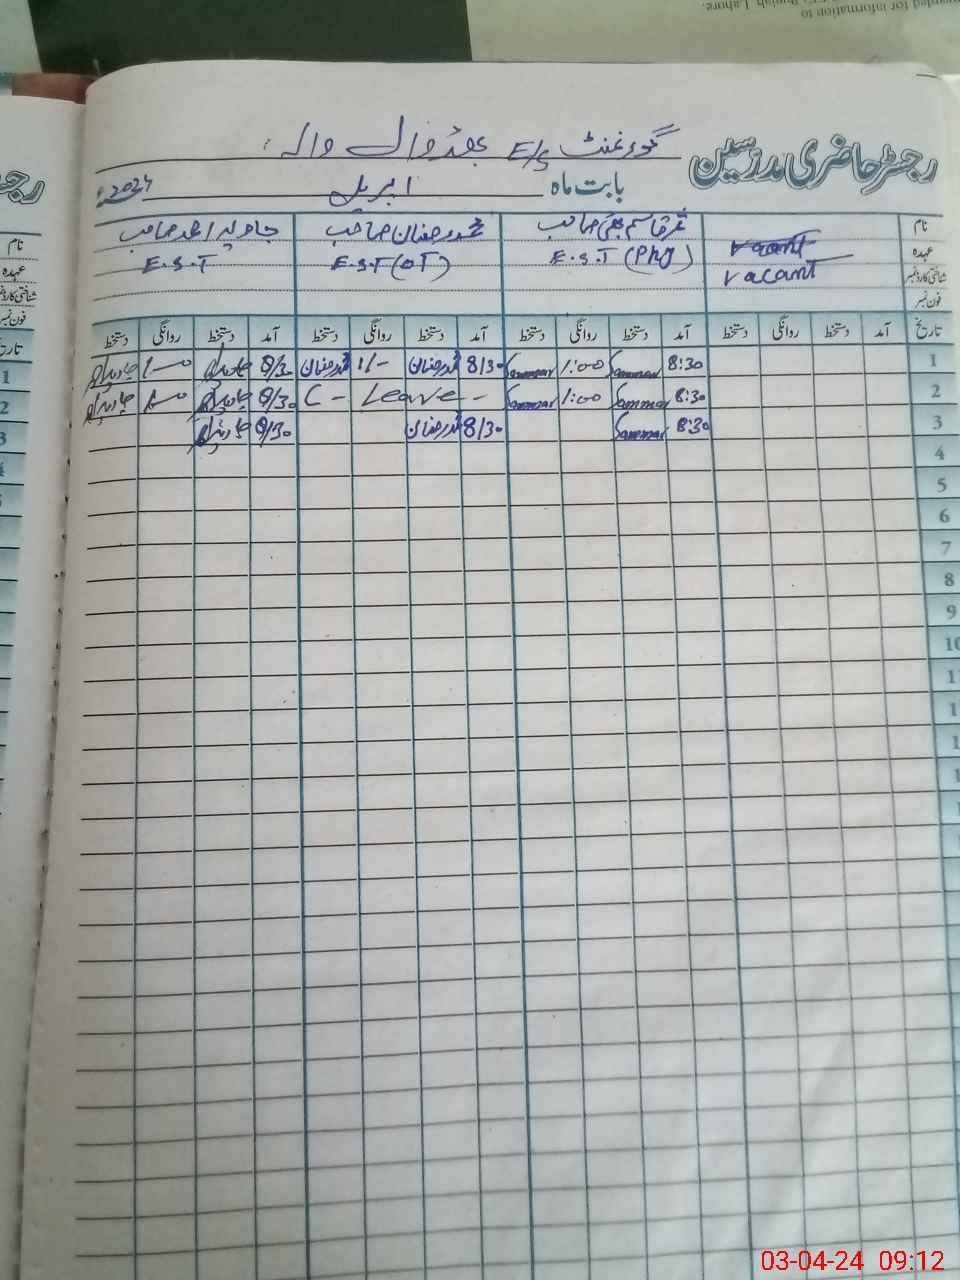 warded for information to
Punjab, Lahore.
رجسٹر حاضری مدرسین گورنمنٹ E/S والہ
بابت ماہ اپریل 2024ء
نام محمد رمضان صاحب جاوید احمد صاحب
عہدہ Vacant E.S.T (PHJ) E.S.T (OT) E.S.T
شناختی کارڈ نمبر Vacant
فون نمبر
تاریخ آمد دستخط روانگی دستخط آمد دستخط روانگی دستخط آمد دستخط روانگی دستخط آمد دستخط روانگی دستخط
1 8:30 Sammar 1:00 Sammar 8/30 محمد رمضان 1/- محمد رمضان 8/30 جاوید احمد 1/-- جاوید احمد
2 8:30 Sammar 1:00 Sammar C - Leave - 8/30 جاوید احمد 1/-- جاوید احمد
3 8:30 Sammar 8/30 محمد رمضان 8/30 جاوید احمد
4
5
6
7
8
9
10
نام
عہدہ
شناختی کارڈ نمبر
فون نمبر
1
2
3
03-04-24 09:12